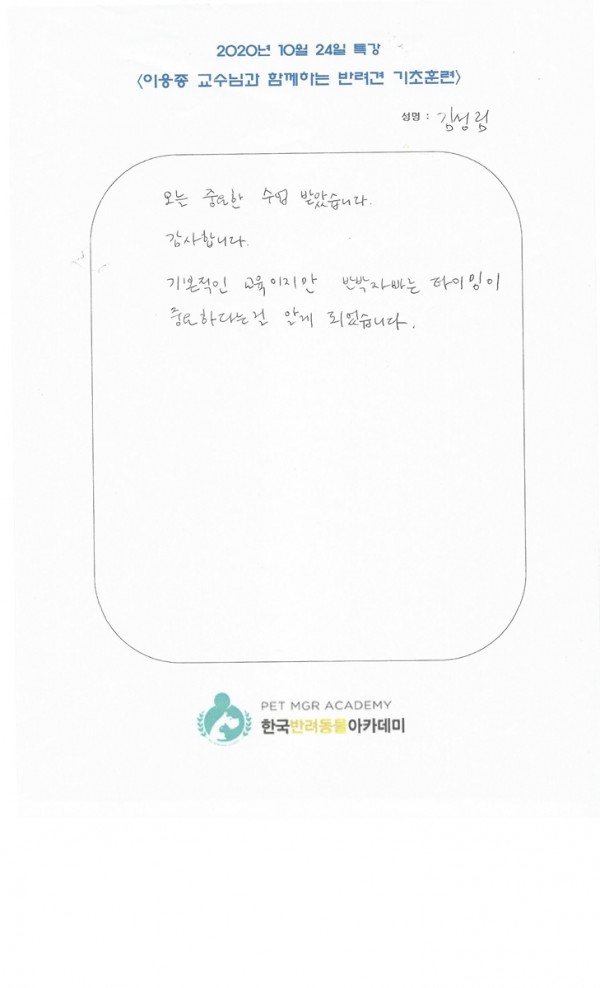 2020년 10월 24일 특강
<이웅종 교수님과 함께하는 반려견 기초훈련>
성명 : 김성림
오늘 중요한 수업 받았습니다.
감사합니다.
기본적인 교육이지만 반박자빠는 타이밍이
중요하다는걸 알게 되었습니다.
PET MGR ACADEMY
한국반려동물아카데미